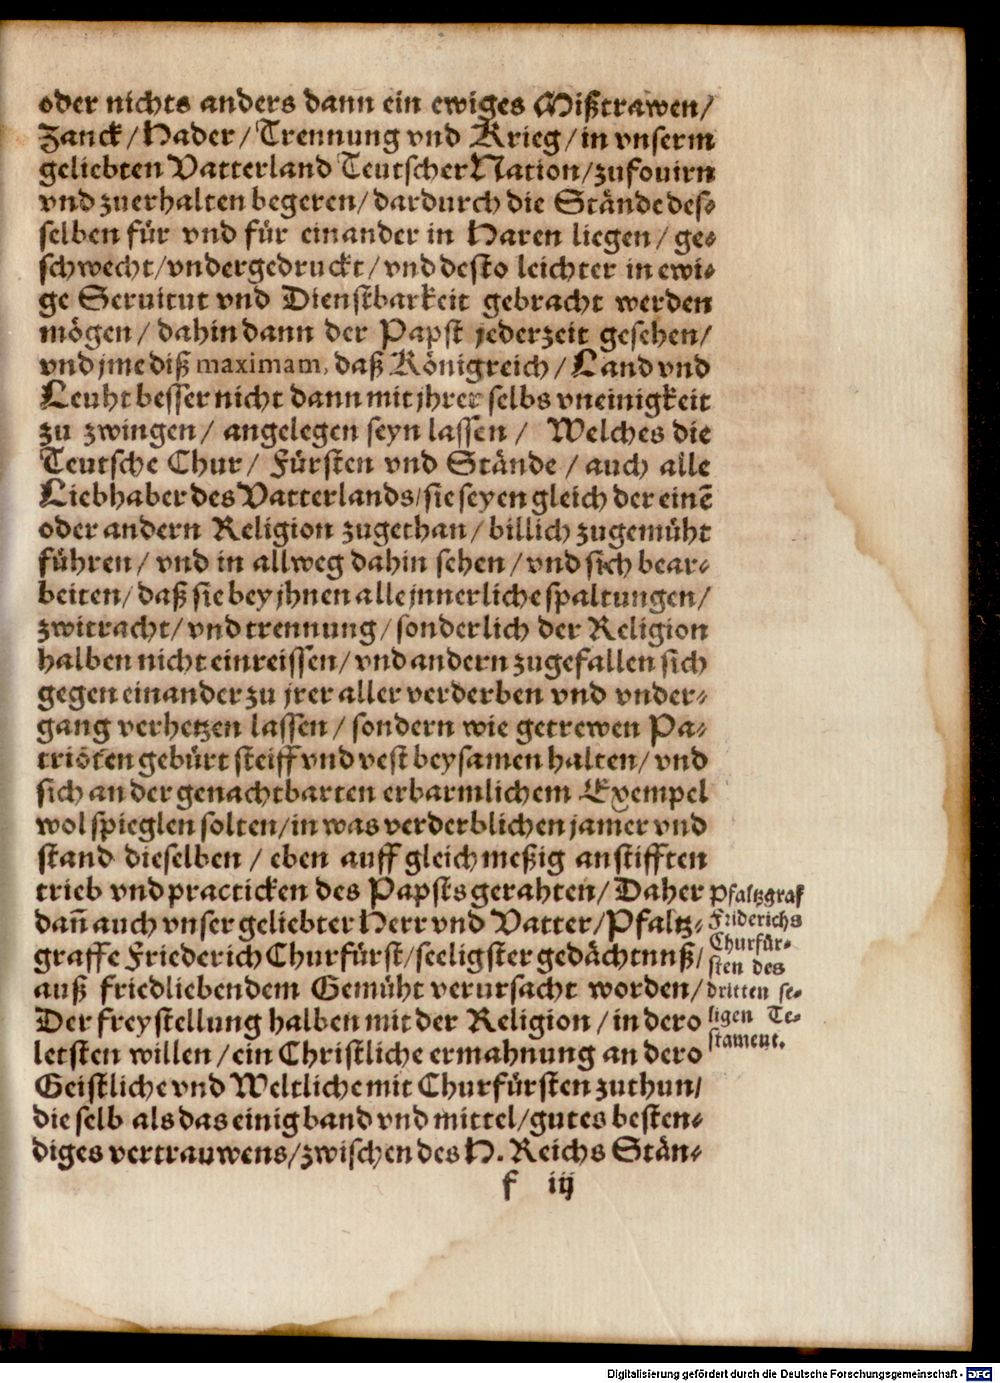 oder nichts anders dann ein ewiges Mißtrawen/
Zanck/Hader/Trennung vnd Krieg/in vnserm
geliebten Vatterland Teutscher Nation/zufouirn
vnd zuerhalten begeren/dardurch die Stände des⸗
selben für vnd für einander in Haren liegen/ge⸗
schwecht/vndergedruckt/vnd desto leichter in ewi⸗
ge Seruitut vnd Dienstbarkeit gebracht werden
mögen/dahin dann der Papst jederzeit gesehen/
vnd jme diß maximam, daß Königreich/Land vnd
Leuht besser nicht dann mit jhrer selbs vneinigkeit
zu zwingen/angelegen seyn lassen/Welches die
Teutsche Chur/Fürsten vnd Stände/auch alle
Liebhaber des Vatterlands/sie seyen gleich der einē
oder andern Religion zugethan/billich zugemüht
führen/vnd in allweg dahin sehen/vnd sich bear⸗
beiten/daß sie bey jhnen alle jnnerliche spaltungen/
zwitracht/vnd trennung/sonderlich der Religion
halben nicht einreissen/vnd andern zugefallen sich
gegen einander zu jrer aller verderben vnd vnder⸗
gang verhetzen lassen/sondern wie getrewen Pa⸗
trioten gebürt steiff vnd vest beysamen halten/vnd
sich an der genachtbarten erbarmlichem Exempel
wol spieglen solten/in was verderblichen jamer vnd
stand dieselben/eben auff gleichmeßig anstifften
trieb vnd practicken des Papsts gerahten/Daher
dan̄ auch vnser geliebter Herr vnd Vatter/Pfaltz⸗
graffe Friederich Churfürst/seeligster gedächtnuß/
auß friedliebendem Gemüht verursacht worden/
Der freystellung halben mit der Religion/in dero
letsten willen/ein Christliche ermahnung an dero
Geistliche vnd Weltliche mit Churfürsten zuthun/
die selb als das einig band vnd mittel/gutes besten⸗
diges vertrauwens/zwischen des H. Reichs Stän⸗
f iij
Pfaltzgraf
Friderichs
Churfür⸗
sten des
dritten se⸗
ligen Te⸗
stament.
Digitalisierung gefördert durch die Deutsche Forschungsgemeinschaft - DFG